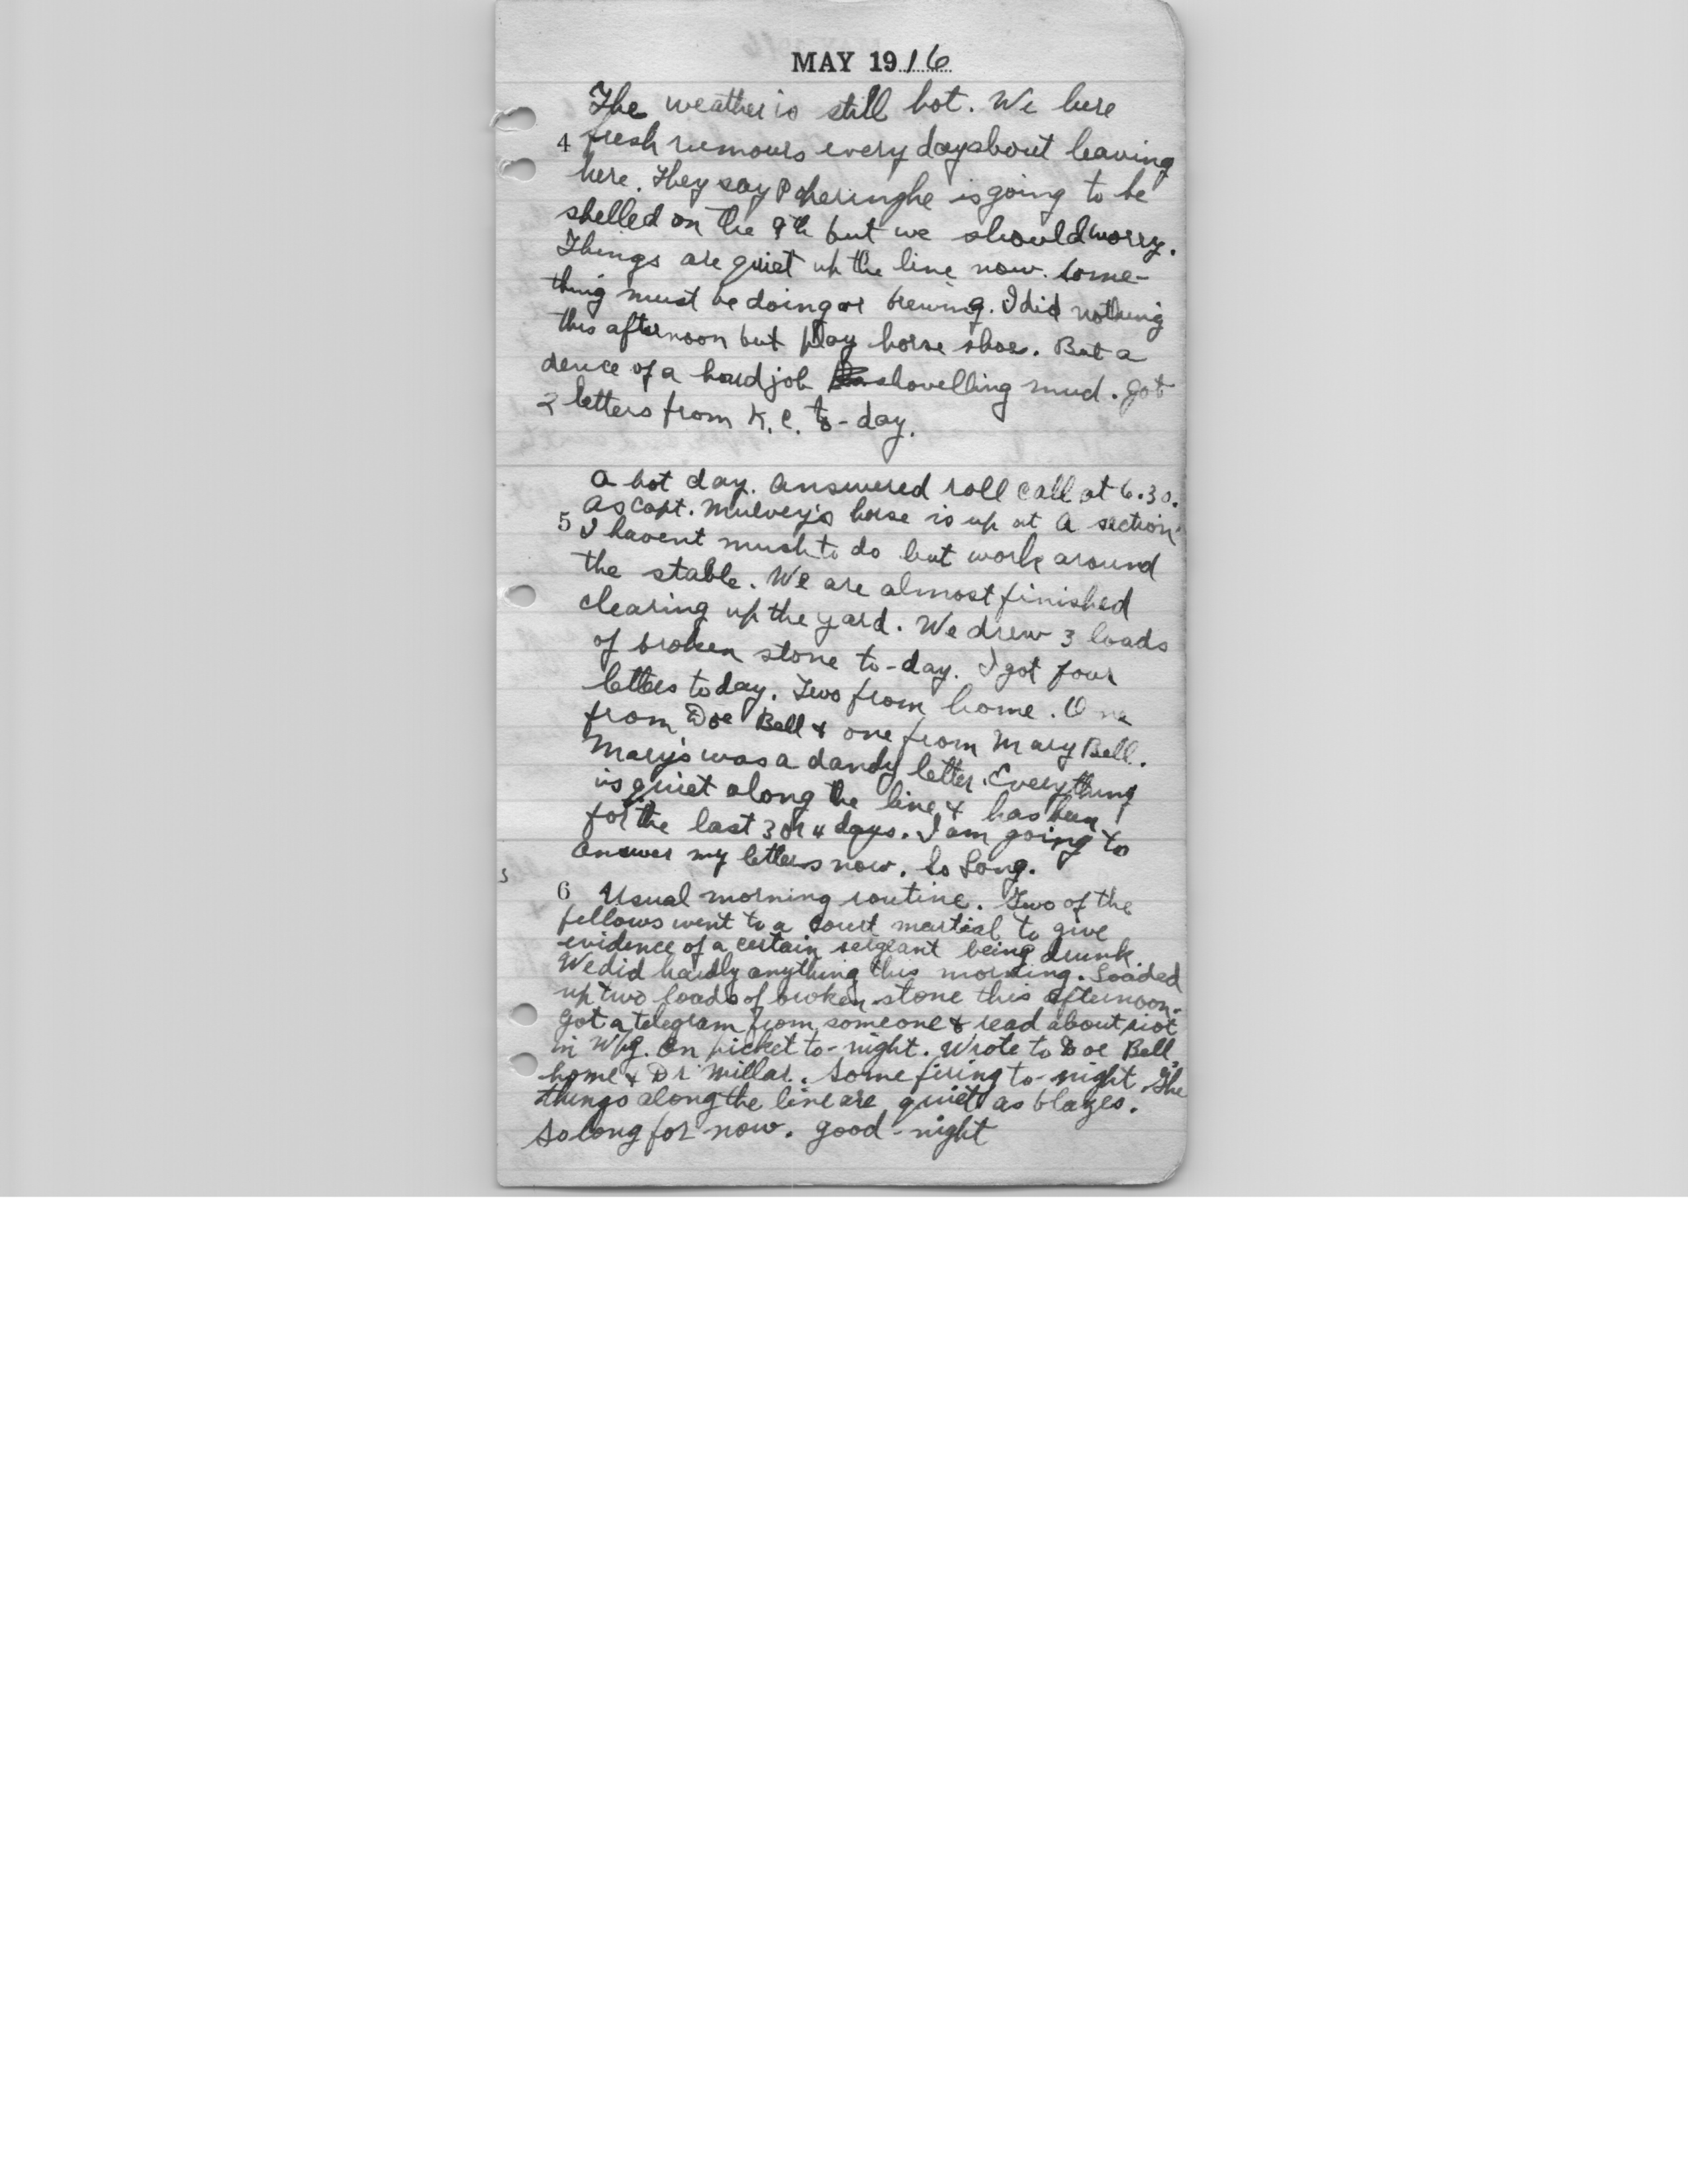 MAY 1916
The weather is still hot. We here
4 fresh rumours every day about leaving
here. They say Pheringhe is going to be
shelled on the 9th but we should worry.
Things are quiet up the line now. Some-
thing must be doing or brewing. I did nothing
this afternoon but play horse shoe. But a
dence of a hard job shovelling mud. Got
2 letters from K.C. to-day.
A hot day. Answered roll call at 6.30.
As Capt. Mulvey's horse is up at A section
5 I havent much to do but work around
the stable. We are almost finished
clearing up the yard. We drew 3 loads
of broken stone to-day. I got four
letters today. Two from home. One
from Doe Bell & one from Mary Bell.
Mary's was a dandy letter. Everything
is quiet along the line & has been
for the last 3 or 4 days. I am going to
answer my letters now. So Long.
6 Usual morning routine. Two of the
fellows went to a court martial to give
evidence of a certain sergeant being drunk.
We did hardly anything this morning. Loaded
up two loads of broken stone this afternoon.
Got a telegram from someone & read about riot
in Wpg. On picket to-night. Wrote to Doe Bell,
home & Dr Millar. Some firing to-night. The
things along the line are quiet as blazes.
So long for now. Good-night